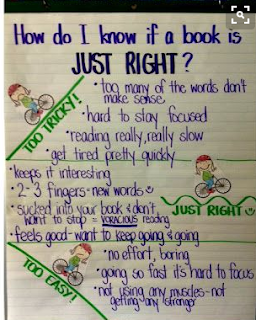 How do I know if a book is
JUST RIGHT?
TOO TRICKY!
• too many of the words don't
make sense
• hard to stay focused
• reading really, really slow
• get tired pretty quickly
• keeps it interesting
• 2-3 fingers-new words
• sucked into your book & don't
want to stop = VORACIOUS reading
• feels good-want to keep going & going
JUST RIGHT
TOO EASY!
• no effort, boring
• going so fast it's hard to focus
• not using any muscles-not
getting any stronger